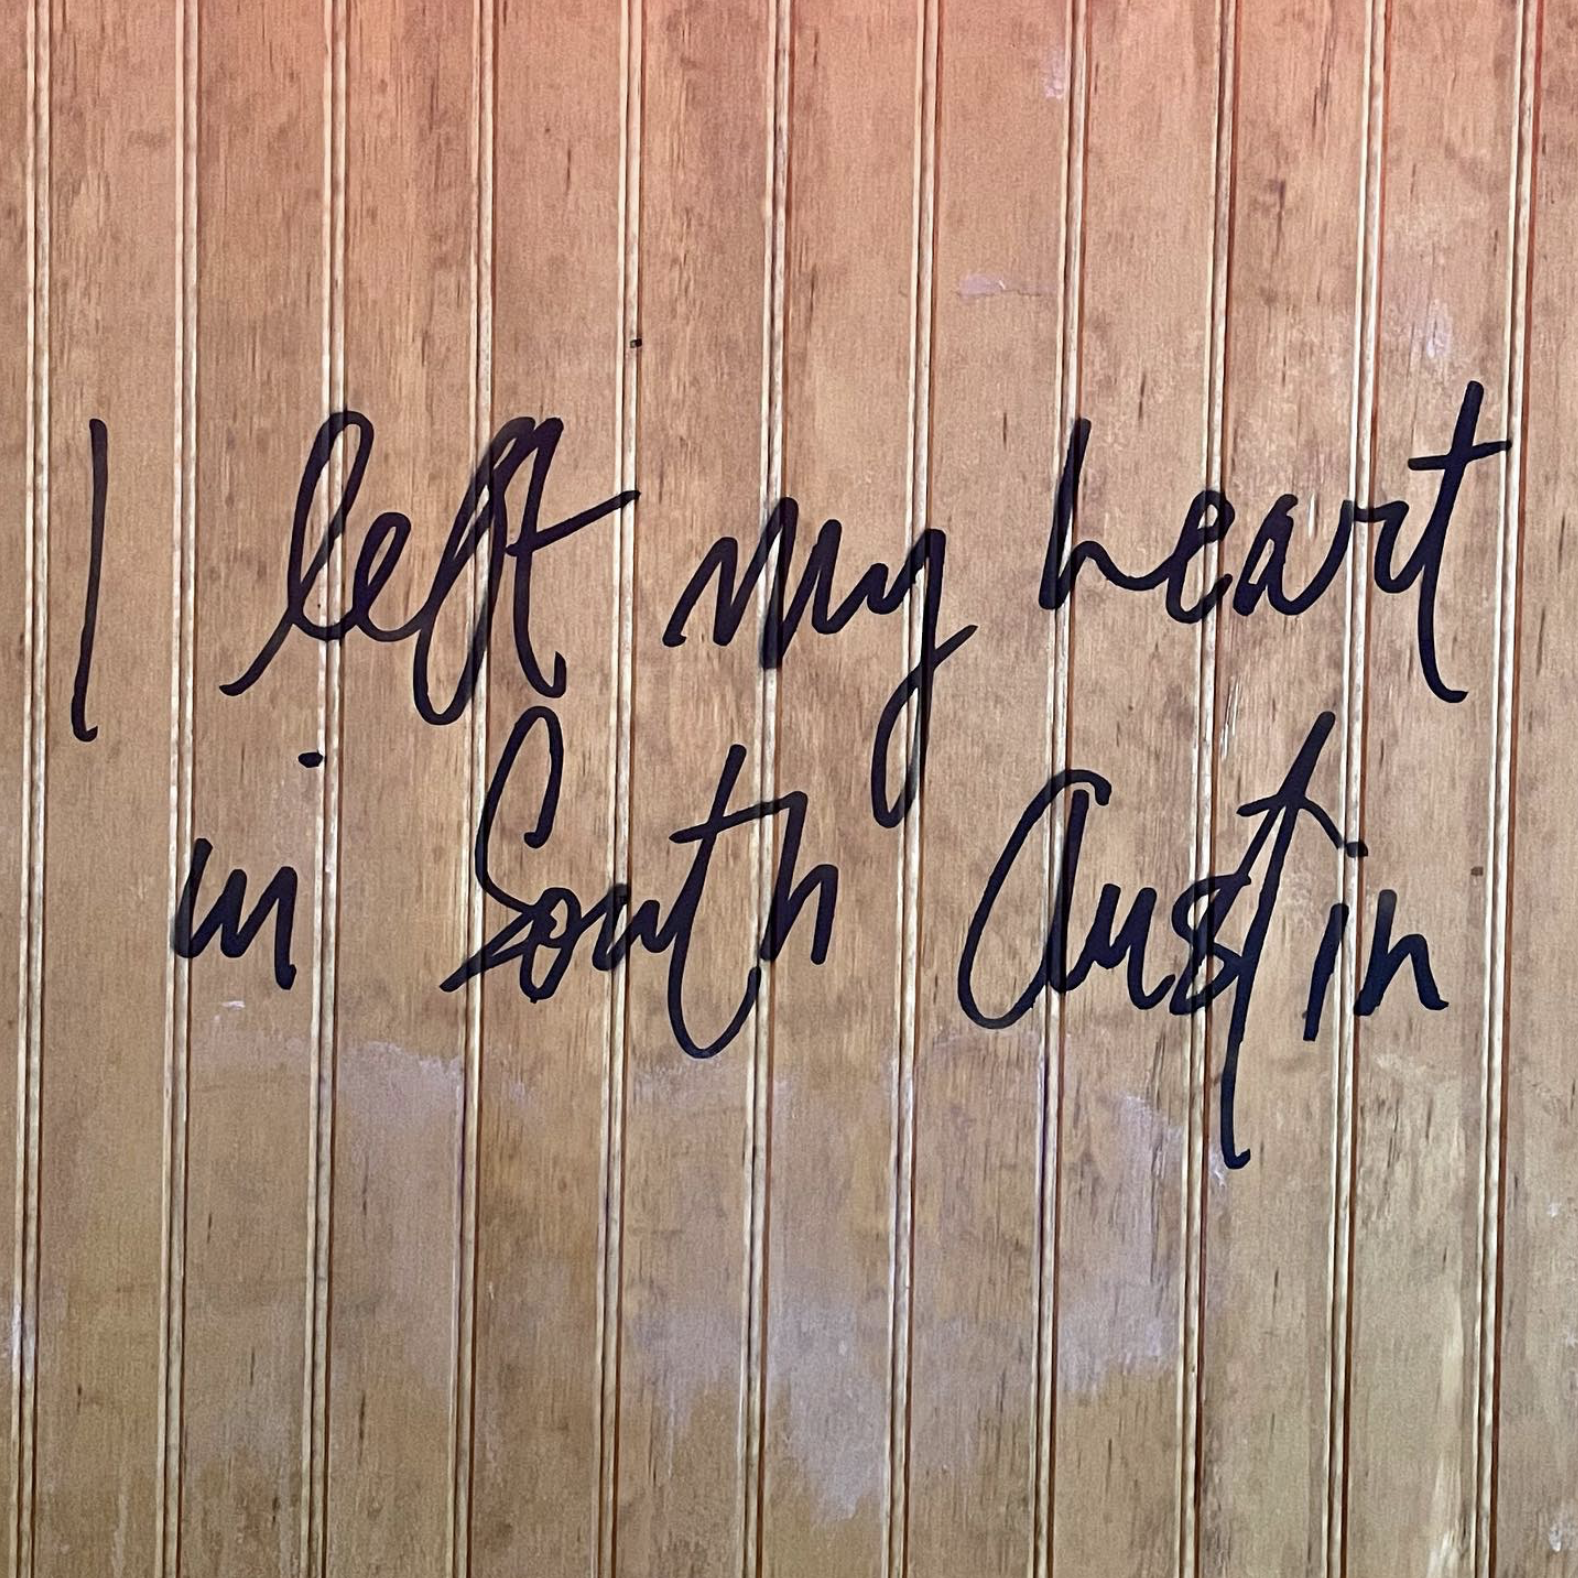 I left my heart
in South Austin